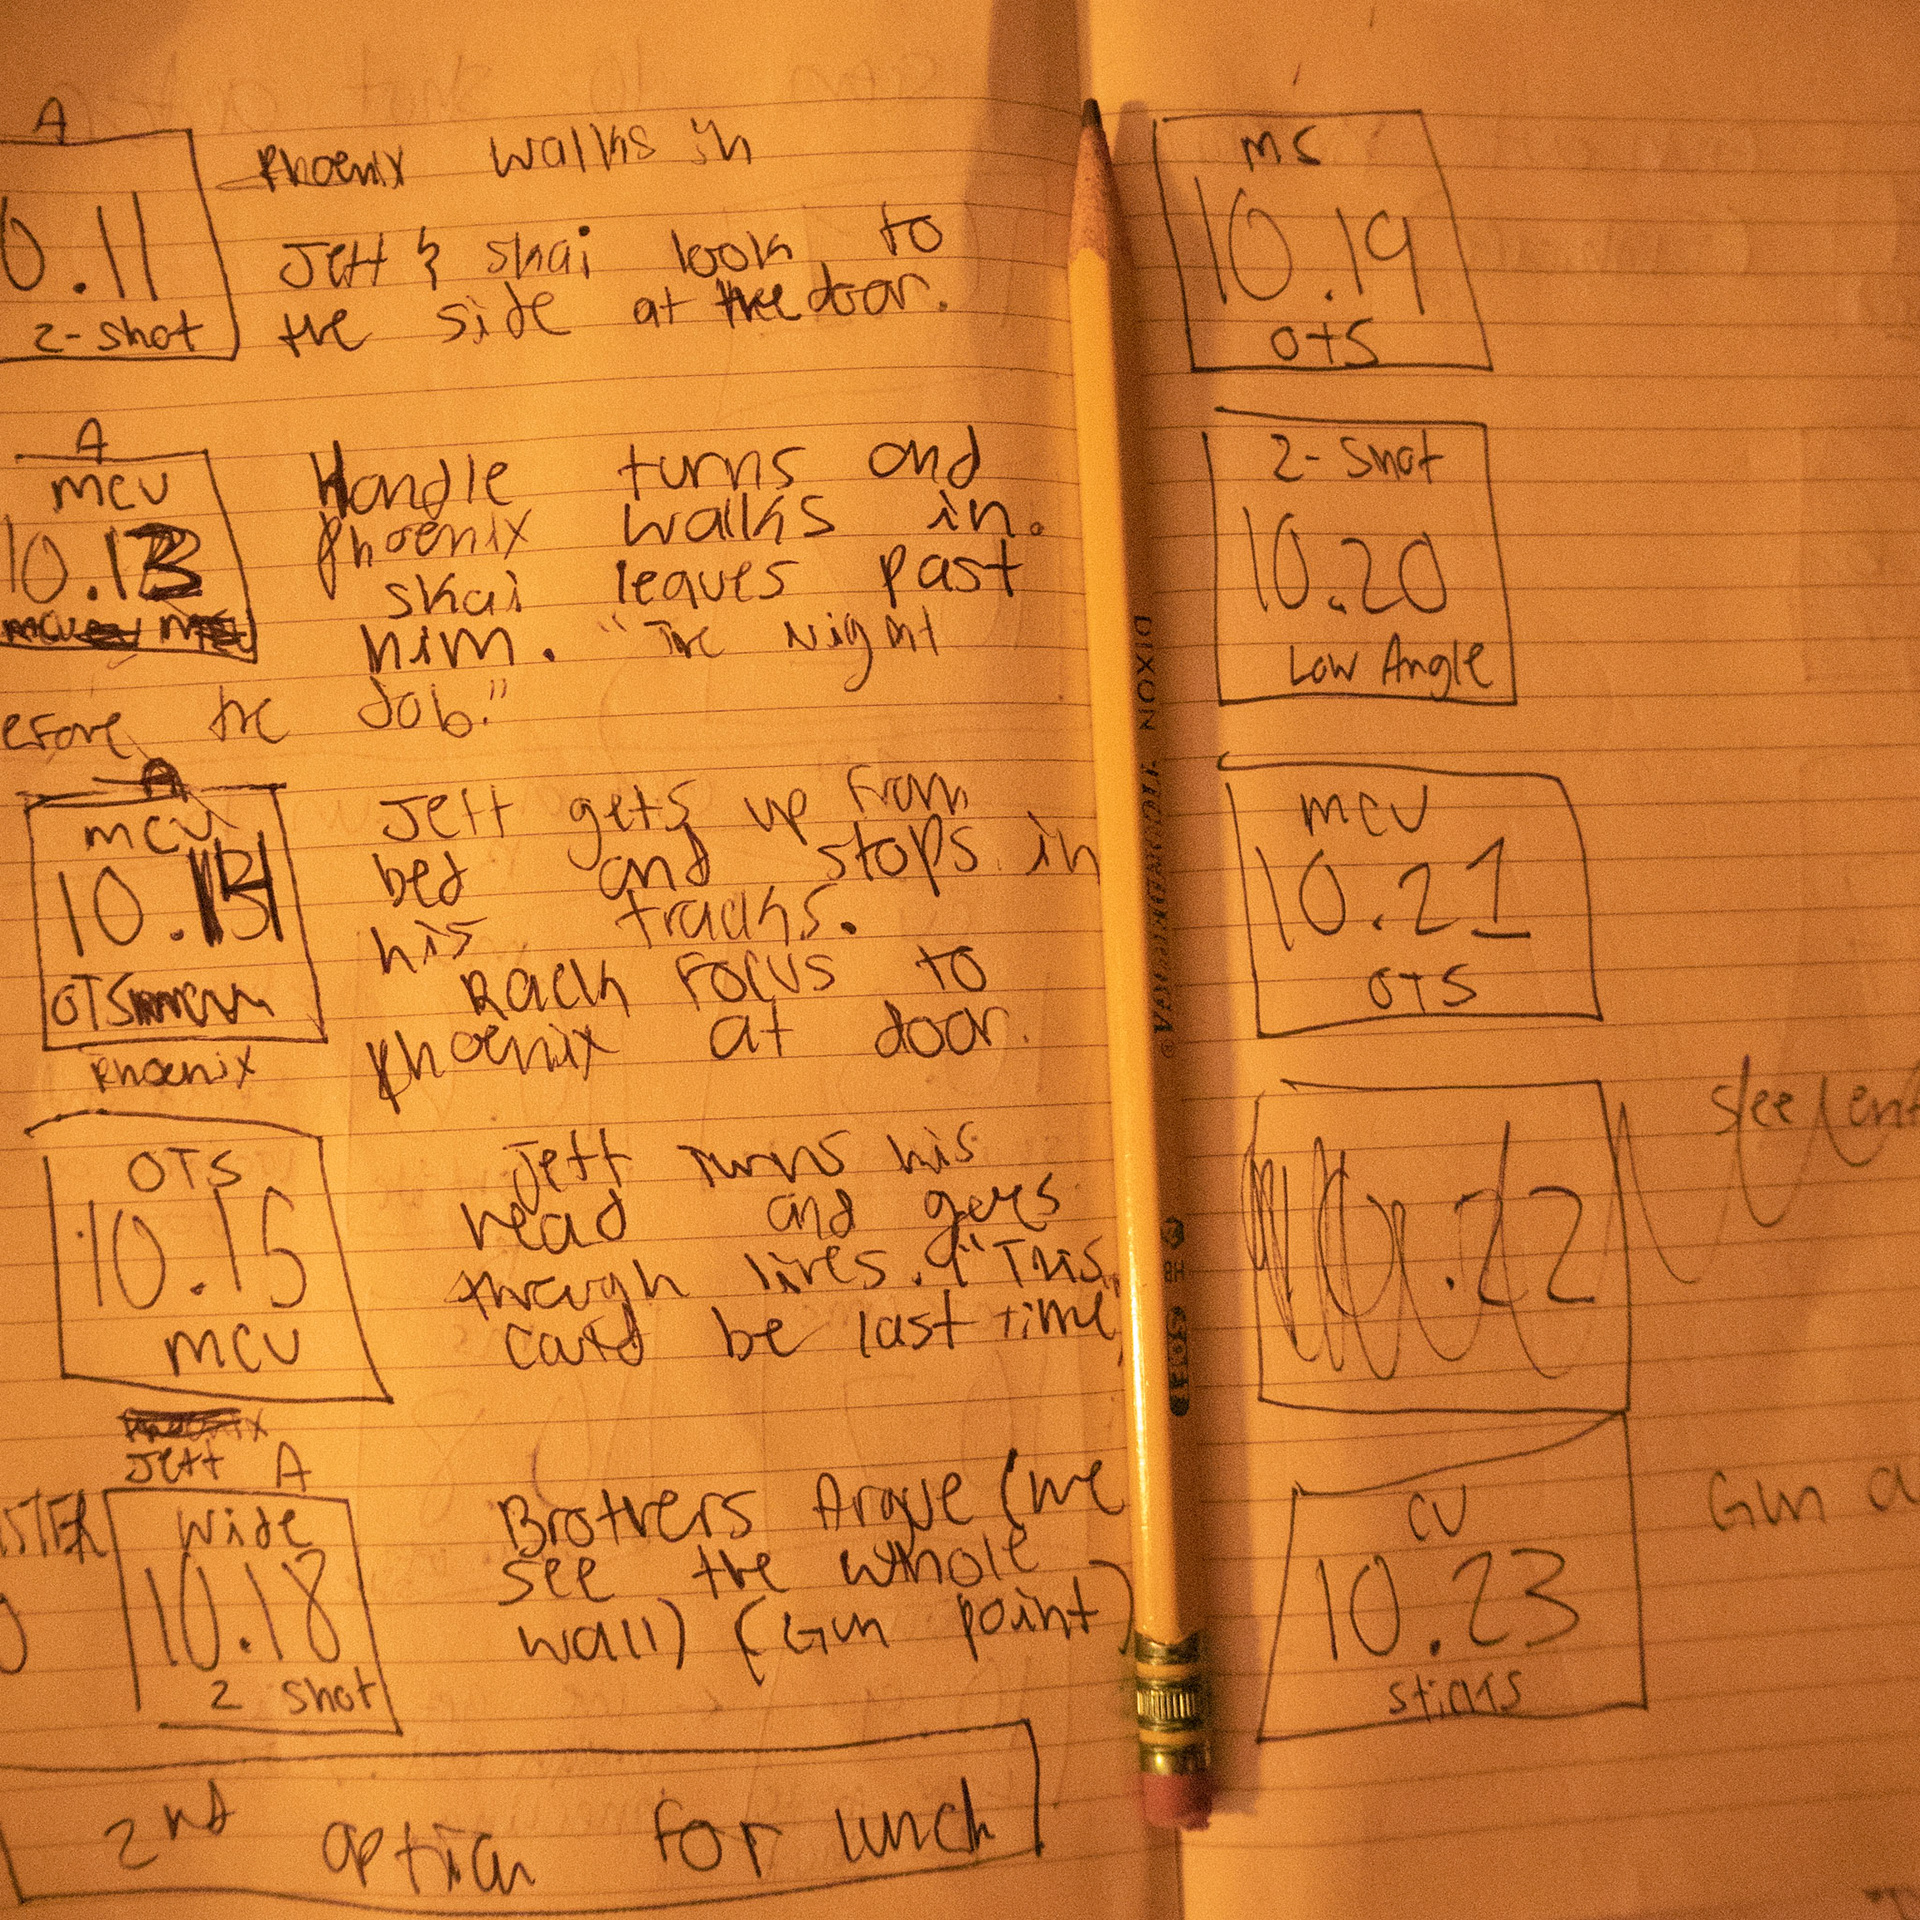 A
0.11
2-shot
Phoenix walks in
Jett & Skai look to
the side at the door.
A
MCU
10.13
Handle turns and
Phoenix walks in.
Skai leaves past
him. "The Night
efore the Job."
A
MCU
10.14
OTS
Phoenix
Jett gets up from
bed and stops in
his tracks.
Rack Focus to
Phoenix at door.
OTS
10.15
MCU
Jett turns his
head and goes
through lines. "This
could be last time
Jett A
STER
Wide
10.18
2 shot
Brothers Argue (we
see the whole
wall) (Gun point)
2nd option for lunch
MS
10.19
OTS
2-Shot
10.20
Low Angle
MCU
10.21
OTS
10.22
CU
10.23
Sticks
Gun a
DIXON TICONDEROGA®
2 HB SOFT